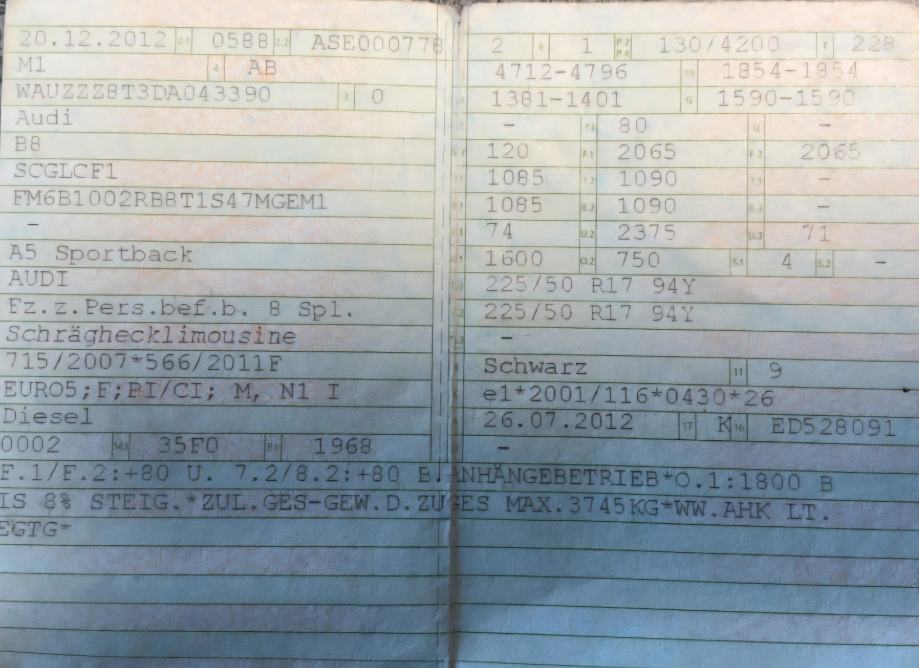 20.12.2012 2.1 0588 2.2 ASE000778
M1 4 AB
WAUZZZ8T3DA043390 3 0
Audi
B8
SCGLCF1
FM6B1002RB8T1S47MGEM1
-
A5 Sportback
AUDI
Fz.z.Pers.bef.b. 8 Spl.
Schräghecklimousine
715/2007*566/2011F
EURO5;F;PI/CI; M, N1 I
Diesel
0002 14.1 35F0 P.1 1968
2 9 1 P.2 P.4 130/4200 T 228
4712-4796 19 1854-1854
1381-1401 G 1590-1590
- 13 80 Q -
120 F.1 2065 F.2 2065
1085 7.2 1090 7.3 -
1085 8.2 1090 8.3 -
74 U.2 2375 U.3 71
1600 O.2 750 S.1 4 S.2 -
225/50 R17 94Y
225/50 R17 94Y
-
Schwarz 11 9
e1*2001/116*0430*26
26.07.2012 17 K 16 ED528091
-
F.1/F.2:+80 U. 7.2/8.2:+80 B.ANHÄNGEBETRIEB*O.1:1800 B
IS 8% STEIG.*ZUL.GES-GEW.D.ZUGES MAX.3745KG*WW.AHK LT.
EGTG*